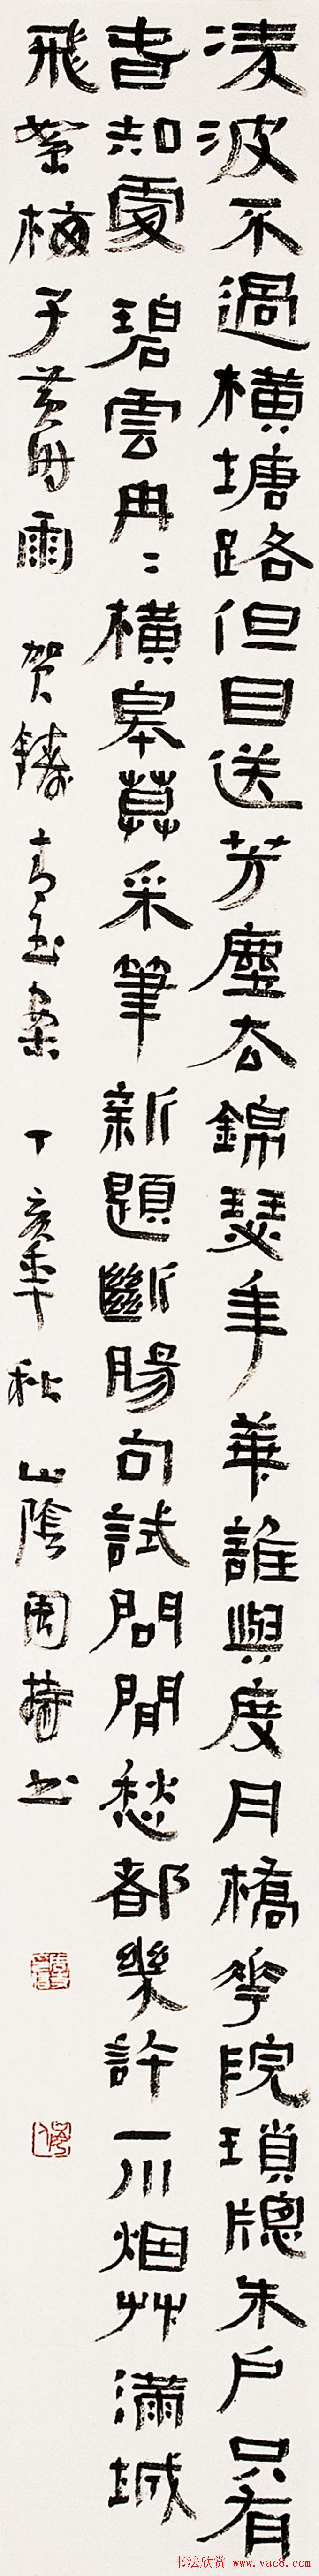 凌波不過橫塘路但目送芳塵去錦瑟年華誰與度月橋花院瑣牕朱戶只有
春知處碧雲冉〻橫皋莫采筆新題斷腸句試問閒愁都幾許一川烟艸滿城
飛絮梅子黃時雨 賀鑄青玉案 丁亥年秋 山陰周書
书法欣赏 www.yac8.com